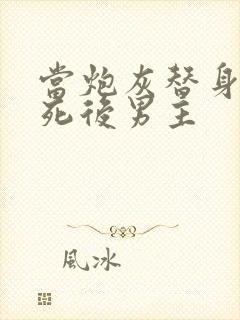 當炮灰替身
死後男主
風冰